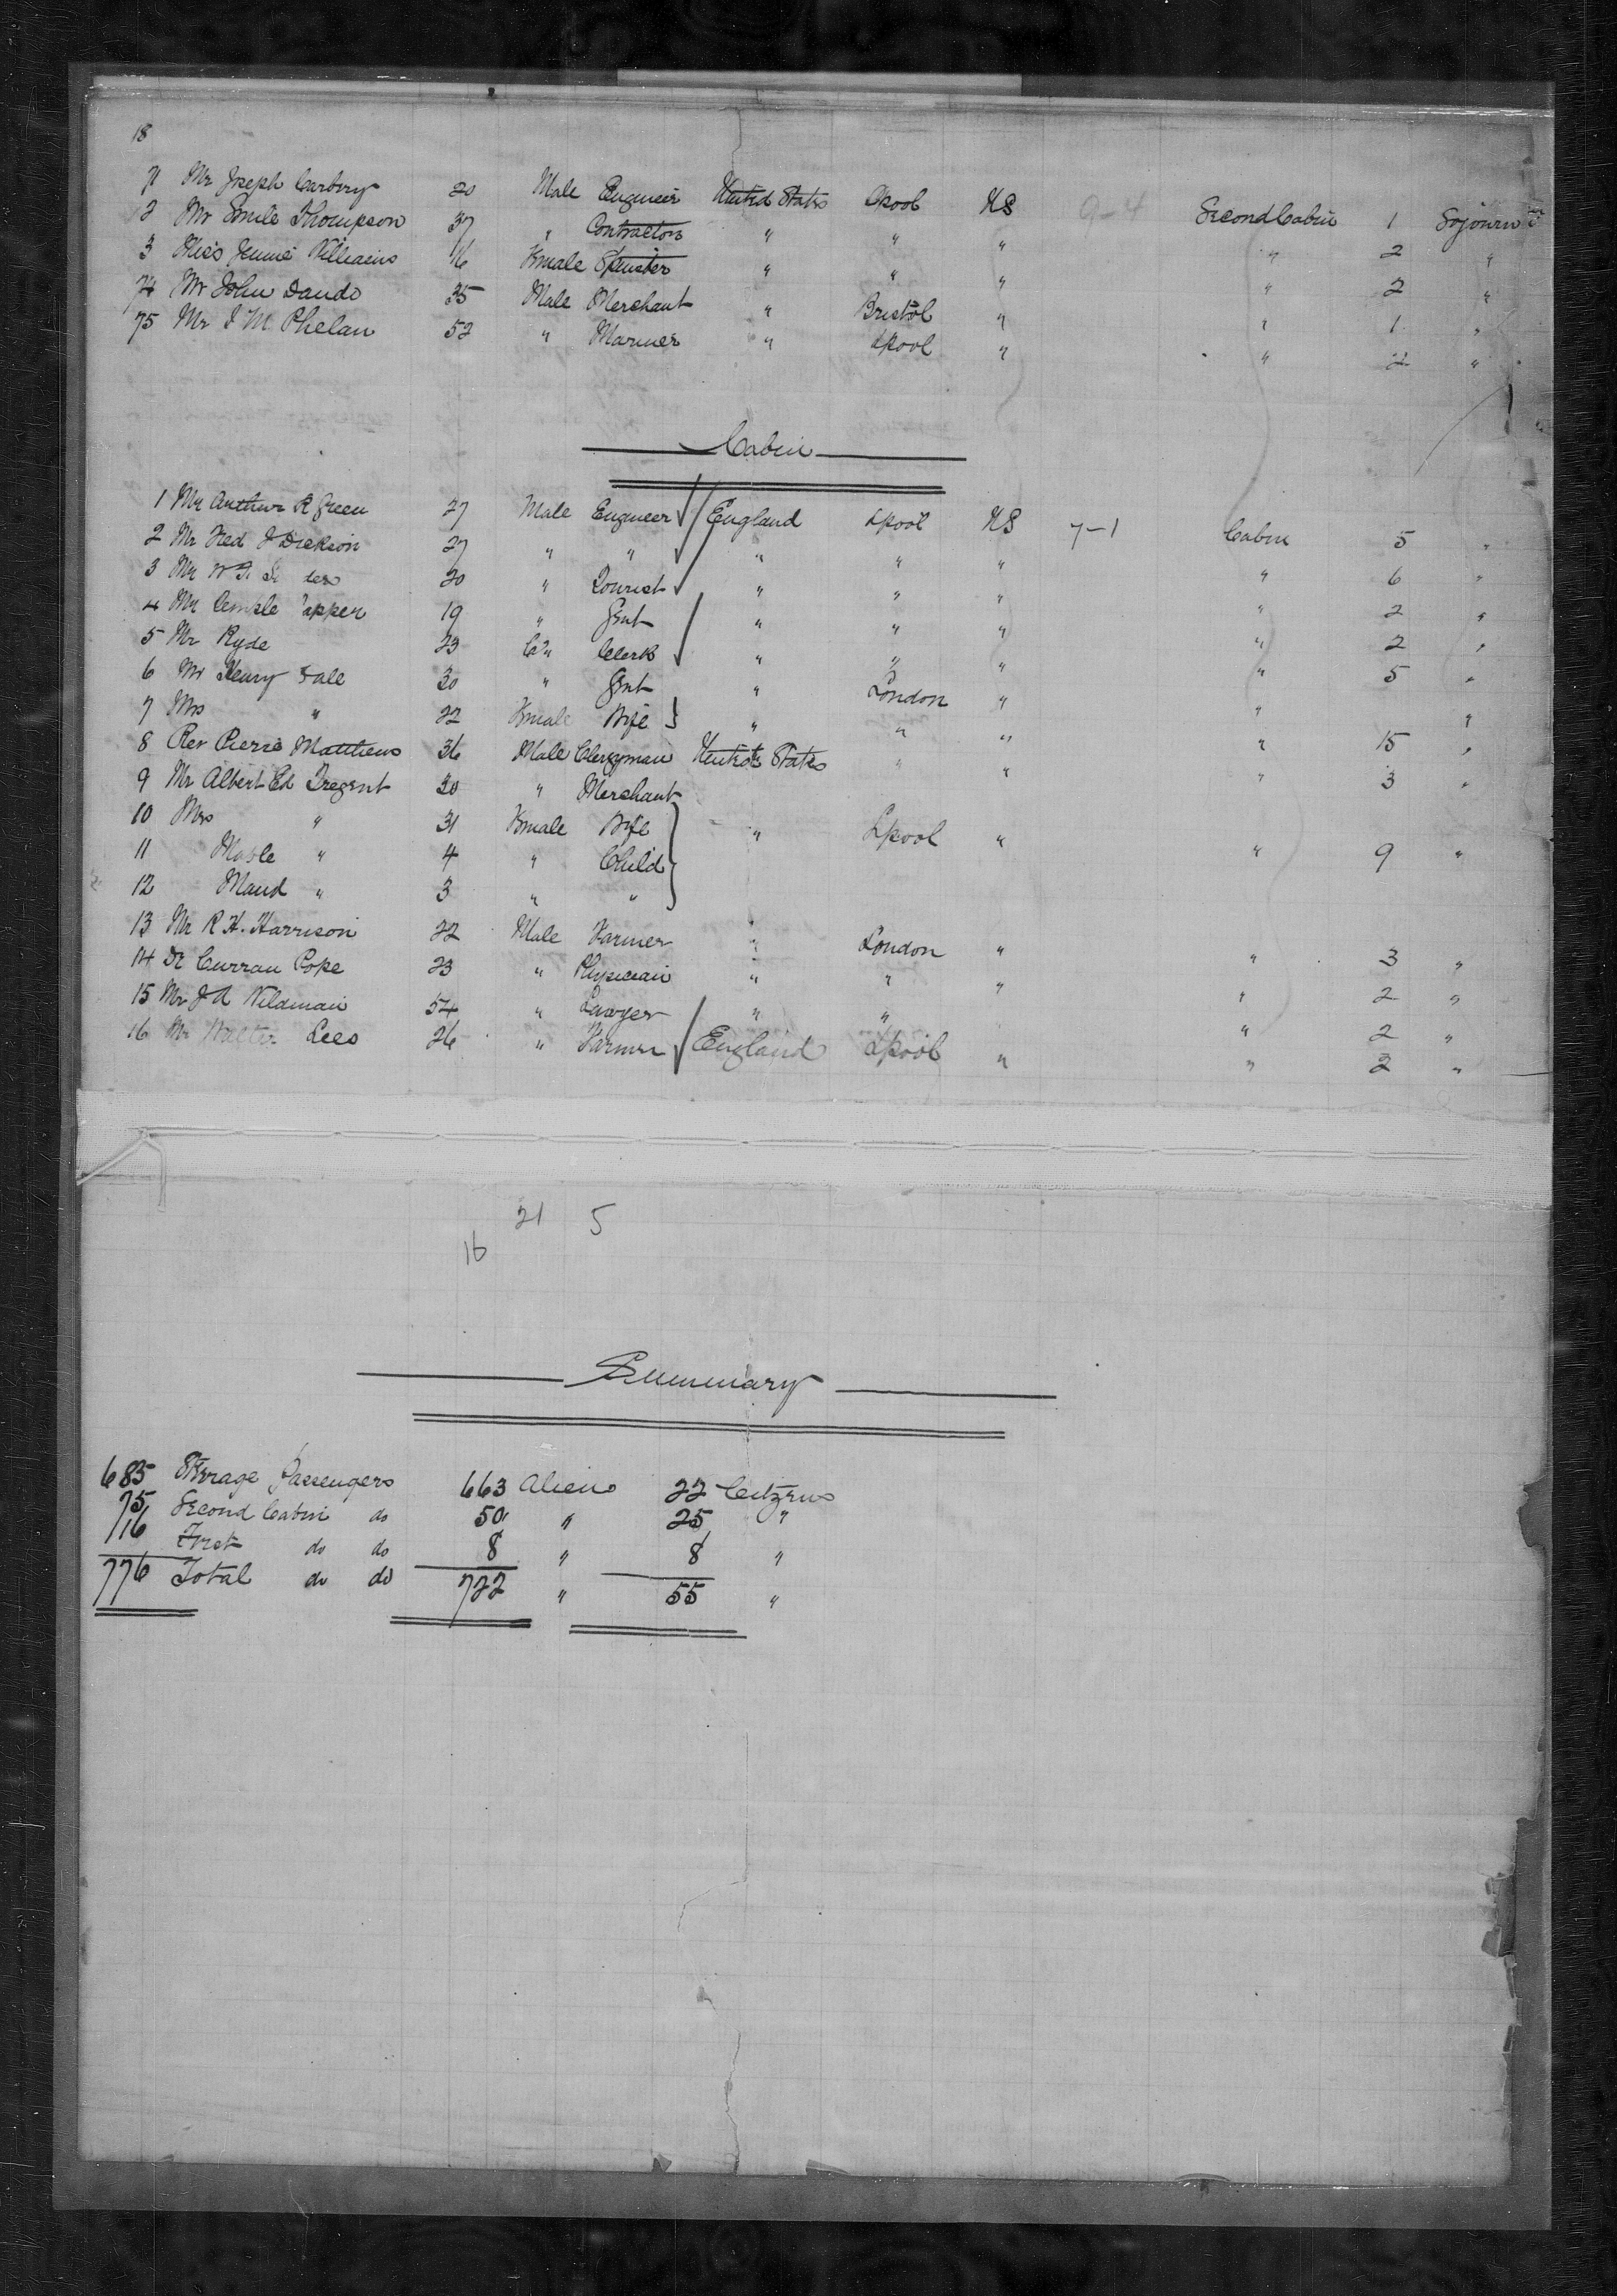 18
71 Mr Joseph Carbery 20 Male Engineer United States Lpool US 9-4 Second Cabin 1 Sojourn
12 Mr Emile Thompson 37 " Contractor " " " " 2 "
3 Miss Jennie Williams 16 Female Spinster " " " " 2 "
74 Mr John Dando 35 Male Merchant " Bristol " " 1 "
75 Mr J M Phelan 52 " Mariner " Lpool " " 2 "
Cabin
1 Mr Arthur R Green 27 Male Engineer England Lpool US 7-1 Cabin 5 "
2 Mr Fred J Dickson 27 " " " " " " 6 "
3 Mr W 20 " Tourist " " " " 2 "
4 Mr Temple 19 " Gent " " " " 2 "
5 Mr Ryde 23 Clerk " " " " 5 "
6 Mr Henry 30 " Gent " London " " "
7 Mrs " 22 Female Wife " " " " 15 "
8 Rev Pierre Matthews 36 Male Clergyman United States " " " 3 "
9 Mr Albert Ed Tregent 30 " Merchant
10 Mrs " 31 Female Wife " Lpool " " 9 "
11 Mable " 4 " Child
12 Maud " 3 " "
13 Mr R H. Harrison 22 Male Farmer " London " " 3 "
14 Dr Curran Pope 23 " Physician " " " " 2 "
15 Mr J A Wildman 54 " Lawyer " " " 2 "
16 Mr Walter Lees 26 " Farmer England Lpool " " 2 "
21 5
16
Summary
685 Steerage Passengers 663 Aliens 22 Citizens
75 Second Cabin do 50 " 25 "
16 First do do 8 " 8 "
776 Total do do 722 " 55 "